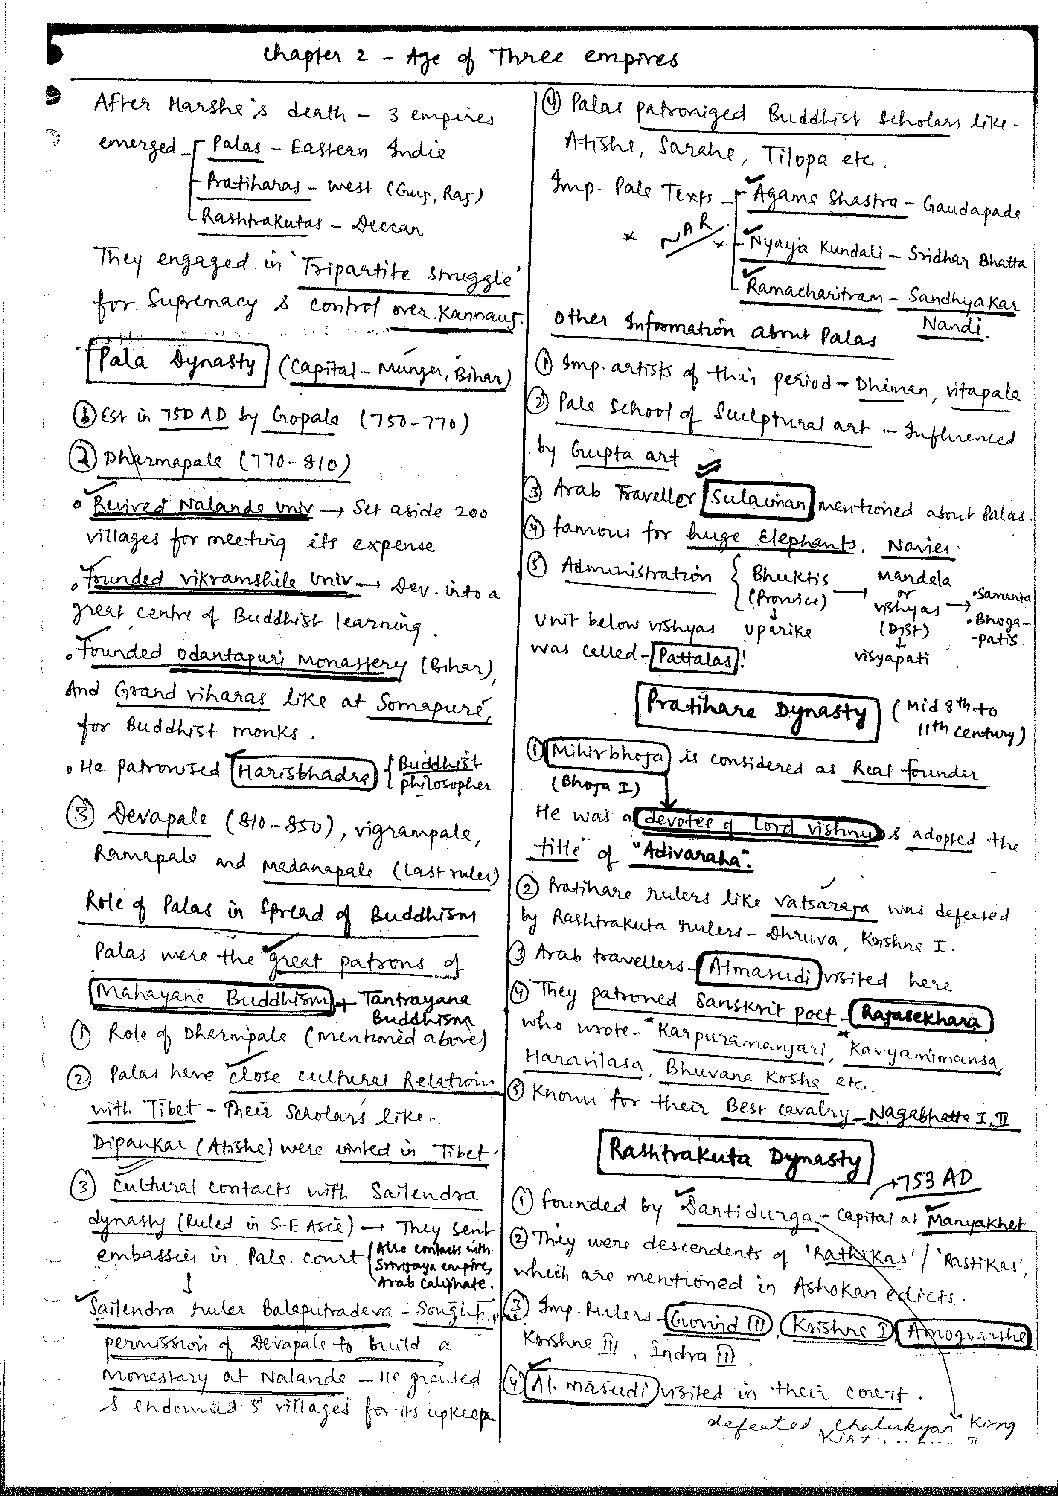 Chapter 2 - Age of Three empires
After Harsha's death - 3 empires
emerged - Palas - Eastern India
Pratiharas - West (Guj, Raj)
Rashtrakutas - Deccan
They engaged in 'Tripartite struggle'
for Supremacy & control over Kannauj.
Pala Dynasty (Capital - Munger, Bihar)
① Est in 750 AD by Gopala (750-770)
② Dharmapala (770-810)
• Revived Nalanda Univ → Set aside 200
villages for meeting its expense
• Founded Vikramshila Univ → Dev. into a
great centre of Buddhist learning.
• Founded Odantapuri Monastery (Bihar),
And Grand viharas like at Somapura,
for Buddhist monks.
• He patronised Harisbhadra { Buddhist
philosopher
③ Devapala (810-850), vigrampala,
Ramapala and Madanapala (Last ruler)
Role of Palas in Spread of Buddhism
Palas were the great patrons of
Mahayana Buddhism + Tantrayana
Buddhism
① Role of Dharmpala (mentioned above)
② Palas have close cultural Relation
with Tibet - Their Scholars like.
Dipankar (Atisha) were invited in Tibet.
③ Cultural contacts with Sailendra
dynasty (Ruled in S-E Asia) → They sent
embassies in Pala court (Also contacts with
Srivijaya empire,
Arab Caliphate.
Sailendra ruler Balaputradeva - Sought
permission of Devapala to build a
monestary at Nalanda - He granted
& endowed 5 villages for its upkeep
④ Palas patronized Buddhist Scholars like -
Atisha, Saraha, Tilopa etc.
Imp. Pala Texts - Agama Shastra - Gaudapada
* NAR * - Nyaya Kundali - Sridhar Bhatta
Ramacharitram - Sandhyakar
Nandi.
Other Information about Palas
① Imp. artists of this period - Dhiman, Vitapala
② Pala School of Sculptural art - Influenced
by Gupta art
③ Arab Traveller Sulaiman mentioned about Palas.
④ famous for huge Elephants, Navies.
⑤ Administration { Bhuktis → Mandala
(Province) or
vishyas → • Samanta
(Dist) • Bhoga-
patis
uparika visyapati
Unit below vishyas
was called - Pattalas!
Pratihara Dynasty (Mid 8th to
11th century)
① Mihirbhoja is considered as Real founder
(Bhoja I)
He was a devotee of Lord Vishnu & adopted the
title of "Adivaraha".
② Pratihara rulers like Vatsaraja was defeated
by Rashtrakuta rulers - Dhruva, Krishna I.
③ Arab travellers - Almasudi visited here
④ They patroned Sanskrit poet - Rajasekhara
who wrote - Karpuramanjari, Kavyamimansa
Haravilasa, Bhuvana Kosha etc.
⑤ Known for their Best cavalry - Nagabhatta I, II
Rashtrakuta Dynasty
→ 753 AD
① founded by Dantidurga - Capital at Manyakhet
② They were descendents of 'Rathikas' / 'Rastikas',
which are mentioned in Ashokan edicts.
③ Imp. Rulers - Govind III, Krishna I Amogvarsha
Krishna III, Indra III.
④ Al. masudi visited in their court.
defeated Chalukyan King